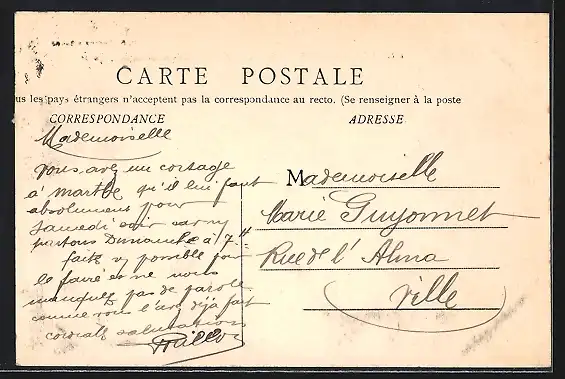 CARTE POSTALE
us les pays étrangers n'acceptent pas la correspondance au recto. (Se renseigner à la poste
CORRESPONDANCE
ADRESSE
Mademoiselle
vous avez un corsage
a' Marthe qu'il lui faut
absolument pour
Samedi soir
partons Dimanche à 7 H
faite possible pour
le faire et ne nous
manquez pas de parole
comme vous l'avez déjà fait
salutations
Mademoiselle
Marie Guyonnet
Rue de l'Alma
Ville